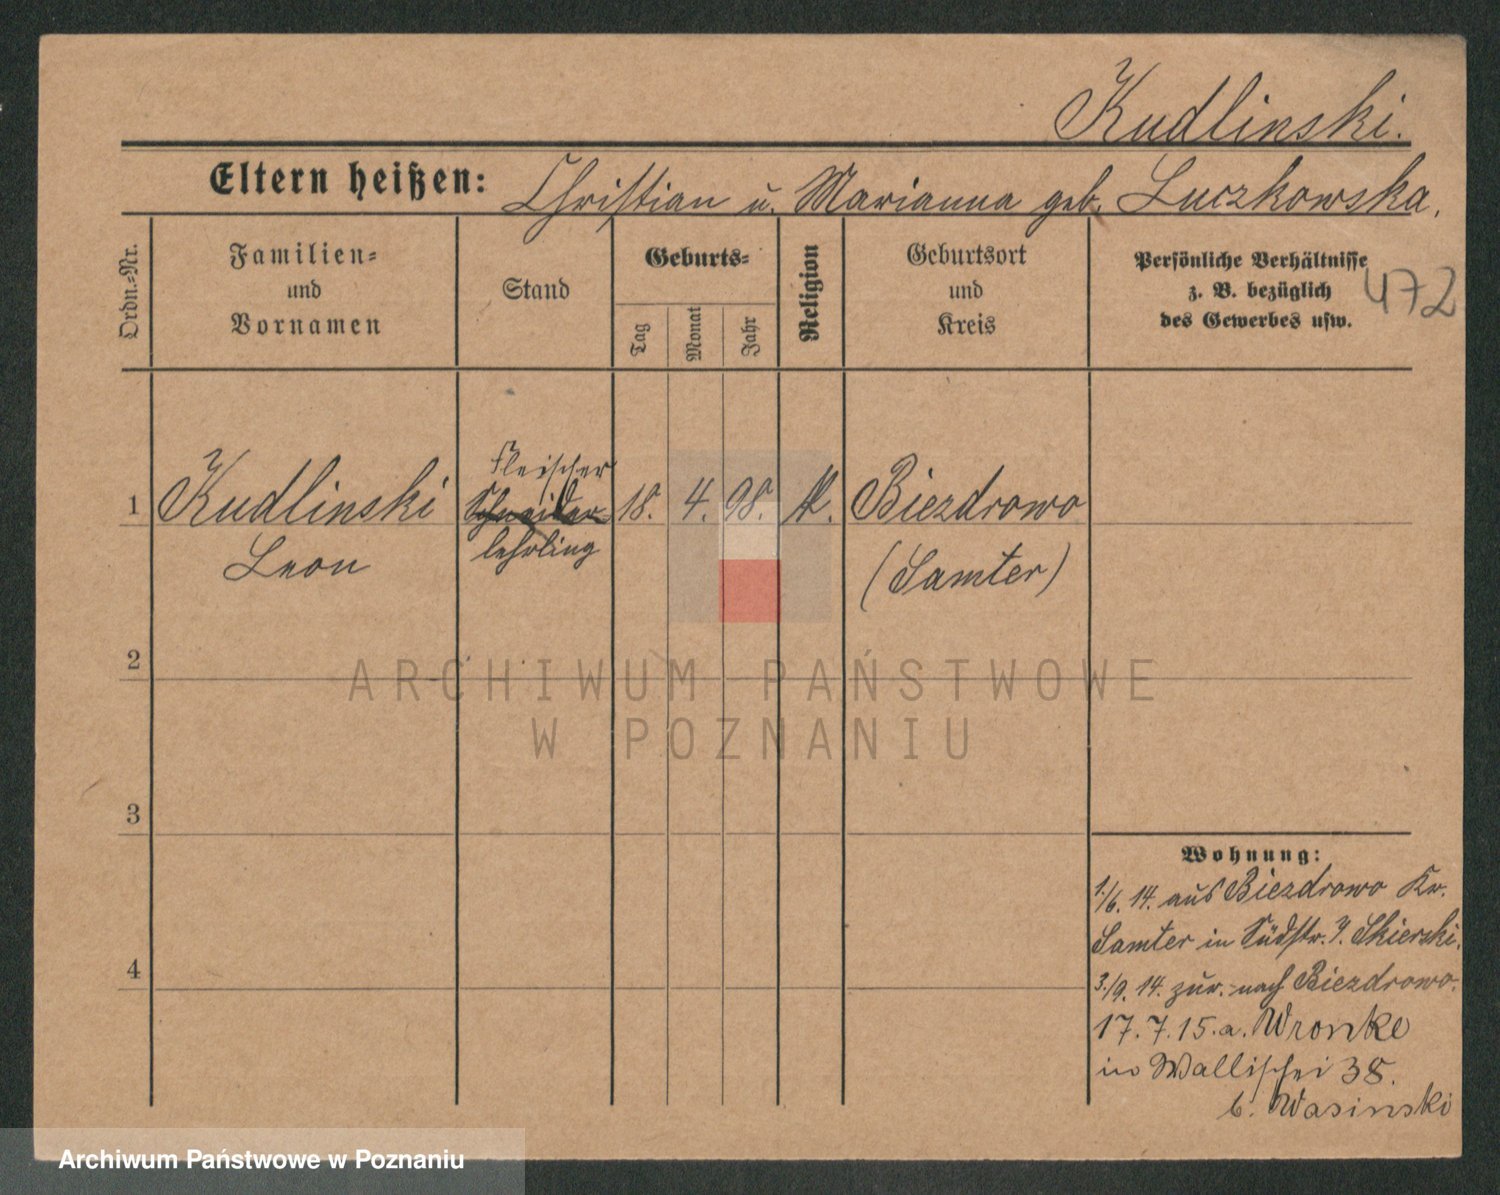 Kudlinski.
Eltern heißen: Christian u. Marianna geb. Luczkowska.
Ordn.=Nr.
Familien=
und
Vornamen
Stand
Geburts=
Tag
Monat
Jahr
Religion
Geburtsort
und
Kreis
Persönliche Verhältnisse
z. B. bezüglich
des Gewerbes usw.
472
1
Kudlinski
Leon
Fleischer
Schneider
lehrling
18. 4. 98. k.
Biezdrowo
(Samter)
2
3
4
Wohnung:
1./6. 14. aus Biezdrowo Kr.
Samter in Südstr. 7. Skierski.
3./9. 14. zur. nach Biezdrowo.
17. 7. 15. a. Wronke
in Wallischei 38.
b. Wasinski
ARCHIWUM PAŃSTWOWE
W POZNANIU
Archiwum Państwowe w Poznaniu